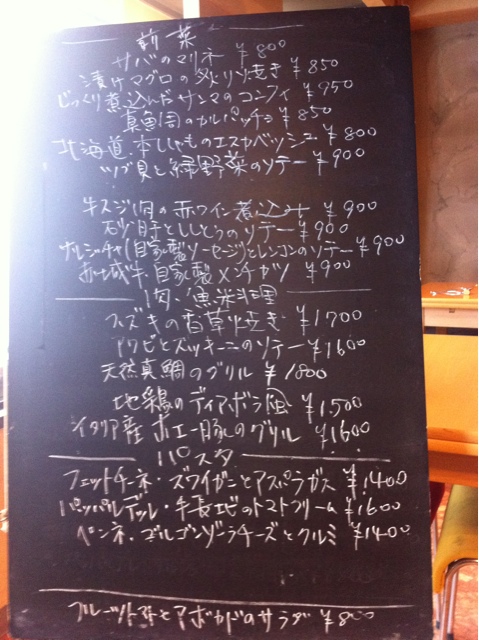 前菜
サバのマリネ ¥800
漬けマグロの炙り焼き ¥850
じっくり煮込んだサンマのコンフィ ¥950
真鯛のカルパッチョ ¥850
北海道本ししゃものエスカベッシュ ¥800
ツブ貝と緑野菜のソテー ¥900
牛スジ肉の赤ワイン煮込み ¥900
砂肝とししとうのソテー ¥900
サルシッチャ(自家製ソーセージ)とレンコンのソテー ¥900
赤城牛自家製メンチカツ ¥900
肉・魚料理
スズキの香草焼き ¥1700
アワビとズッキーニのソテー ¥1600
天然真鯛のグリル ¥1800
地鶏のディアボラ風 ¥1,500
イタリア産ホエー豚のグリル ¥1600
パスタ
フェットチーネ・ズワイガニとアスパラガス ¥1400
パッパルデッレ・手長エビのトマトクリーム ¥1600
ペンネ・ゴルゴンゾーラチーズとクルミ ¥1400
フルーツトマトとアボカドのサラダ ¥800